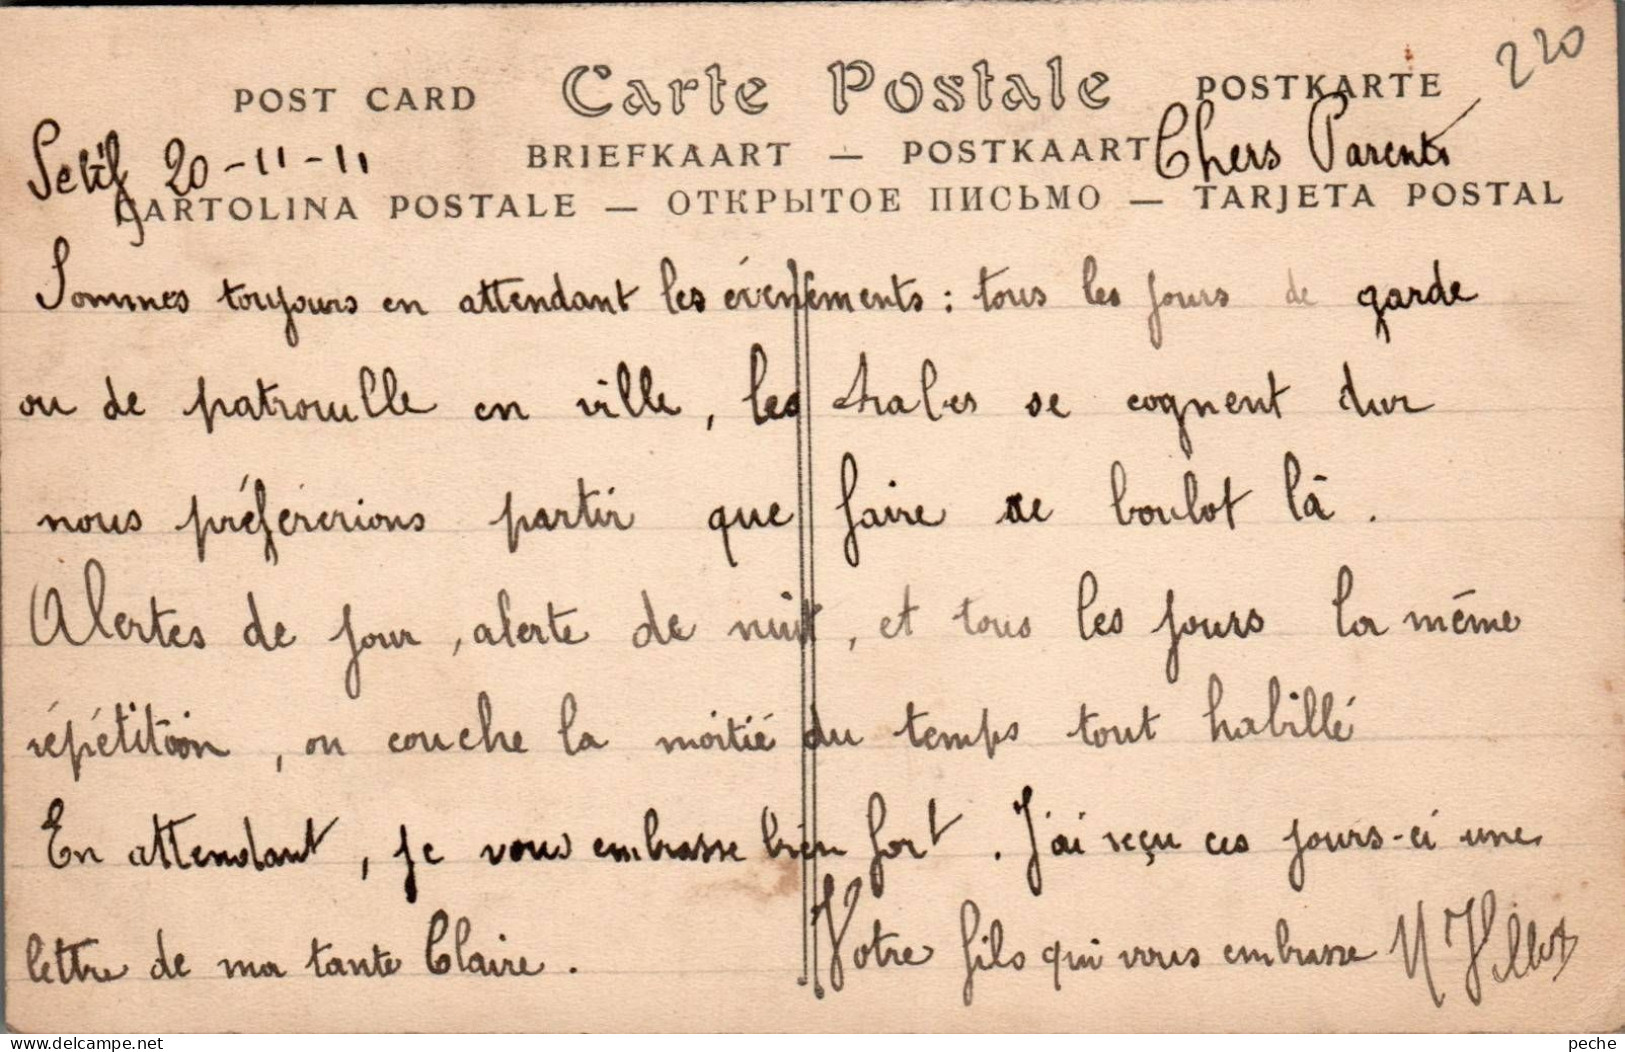 220
POST CARD Carte Postale POSTKARTE
Setif 20-11-11 BRIEFKAART — POSTKAART Chers Parents
CARTOLINA POSTALE — ОТКРЫТОЕ ПИСЬМО — TARJETA POSTAL
Sommes toujours en attendant les évenements : tous les jours de garde
ou de patrouille en ville, les se cognent dur
nous préfererions partir que faire ce boulot là.
Alertes de jour, alerte de nuit, et tous les jours la même
répétition, on couche la moitié du temps tout habillé
En attendant, je vous embrasse bien fort. J'ai reçu ces jours-ci une
lettre de ma tante Claire. Votre fils qui vous embrasse
peche
www.delcampe.net